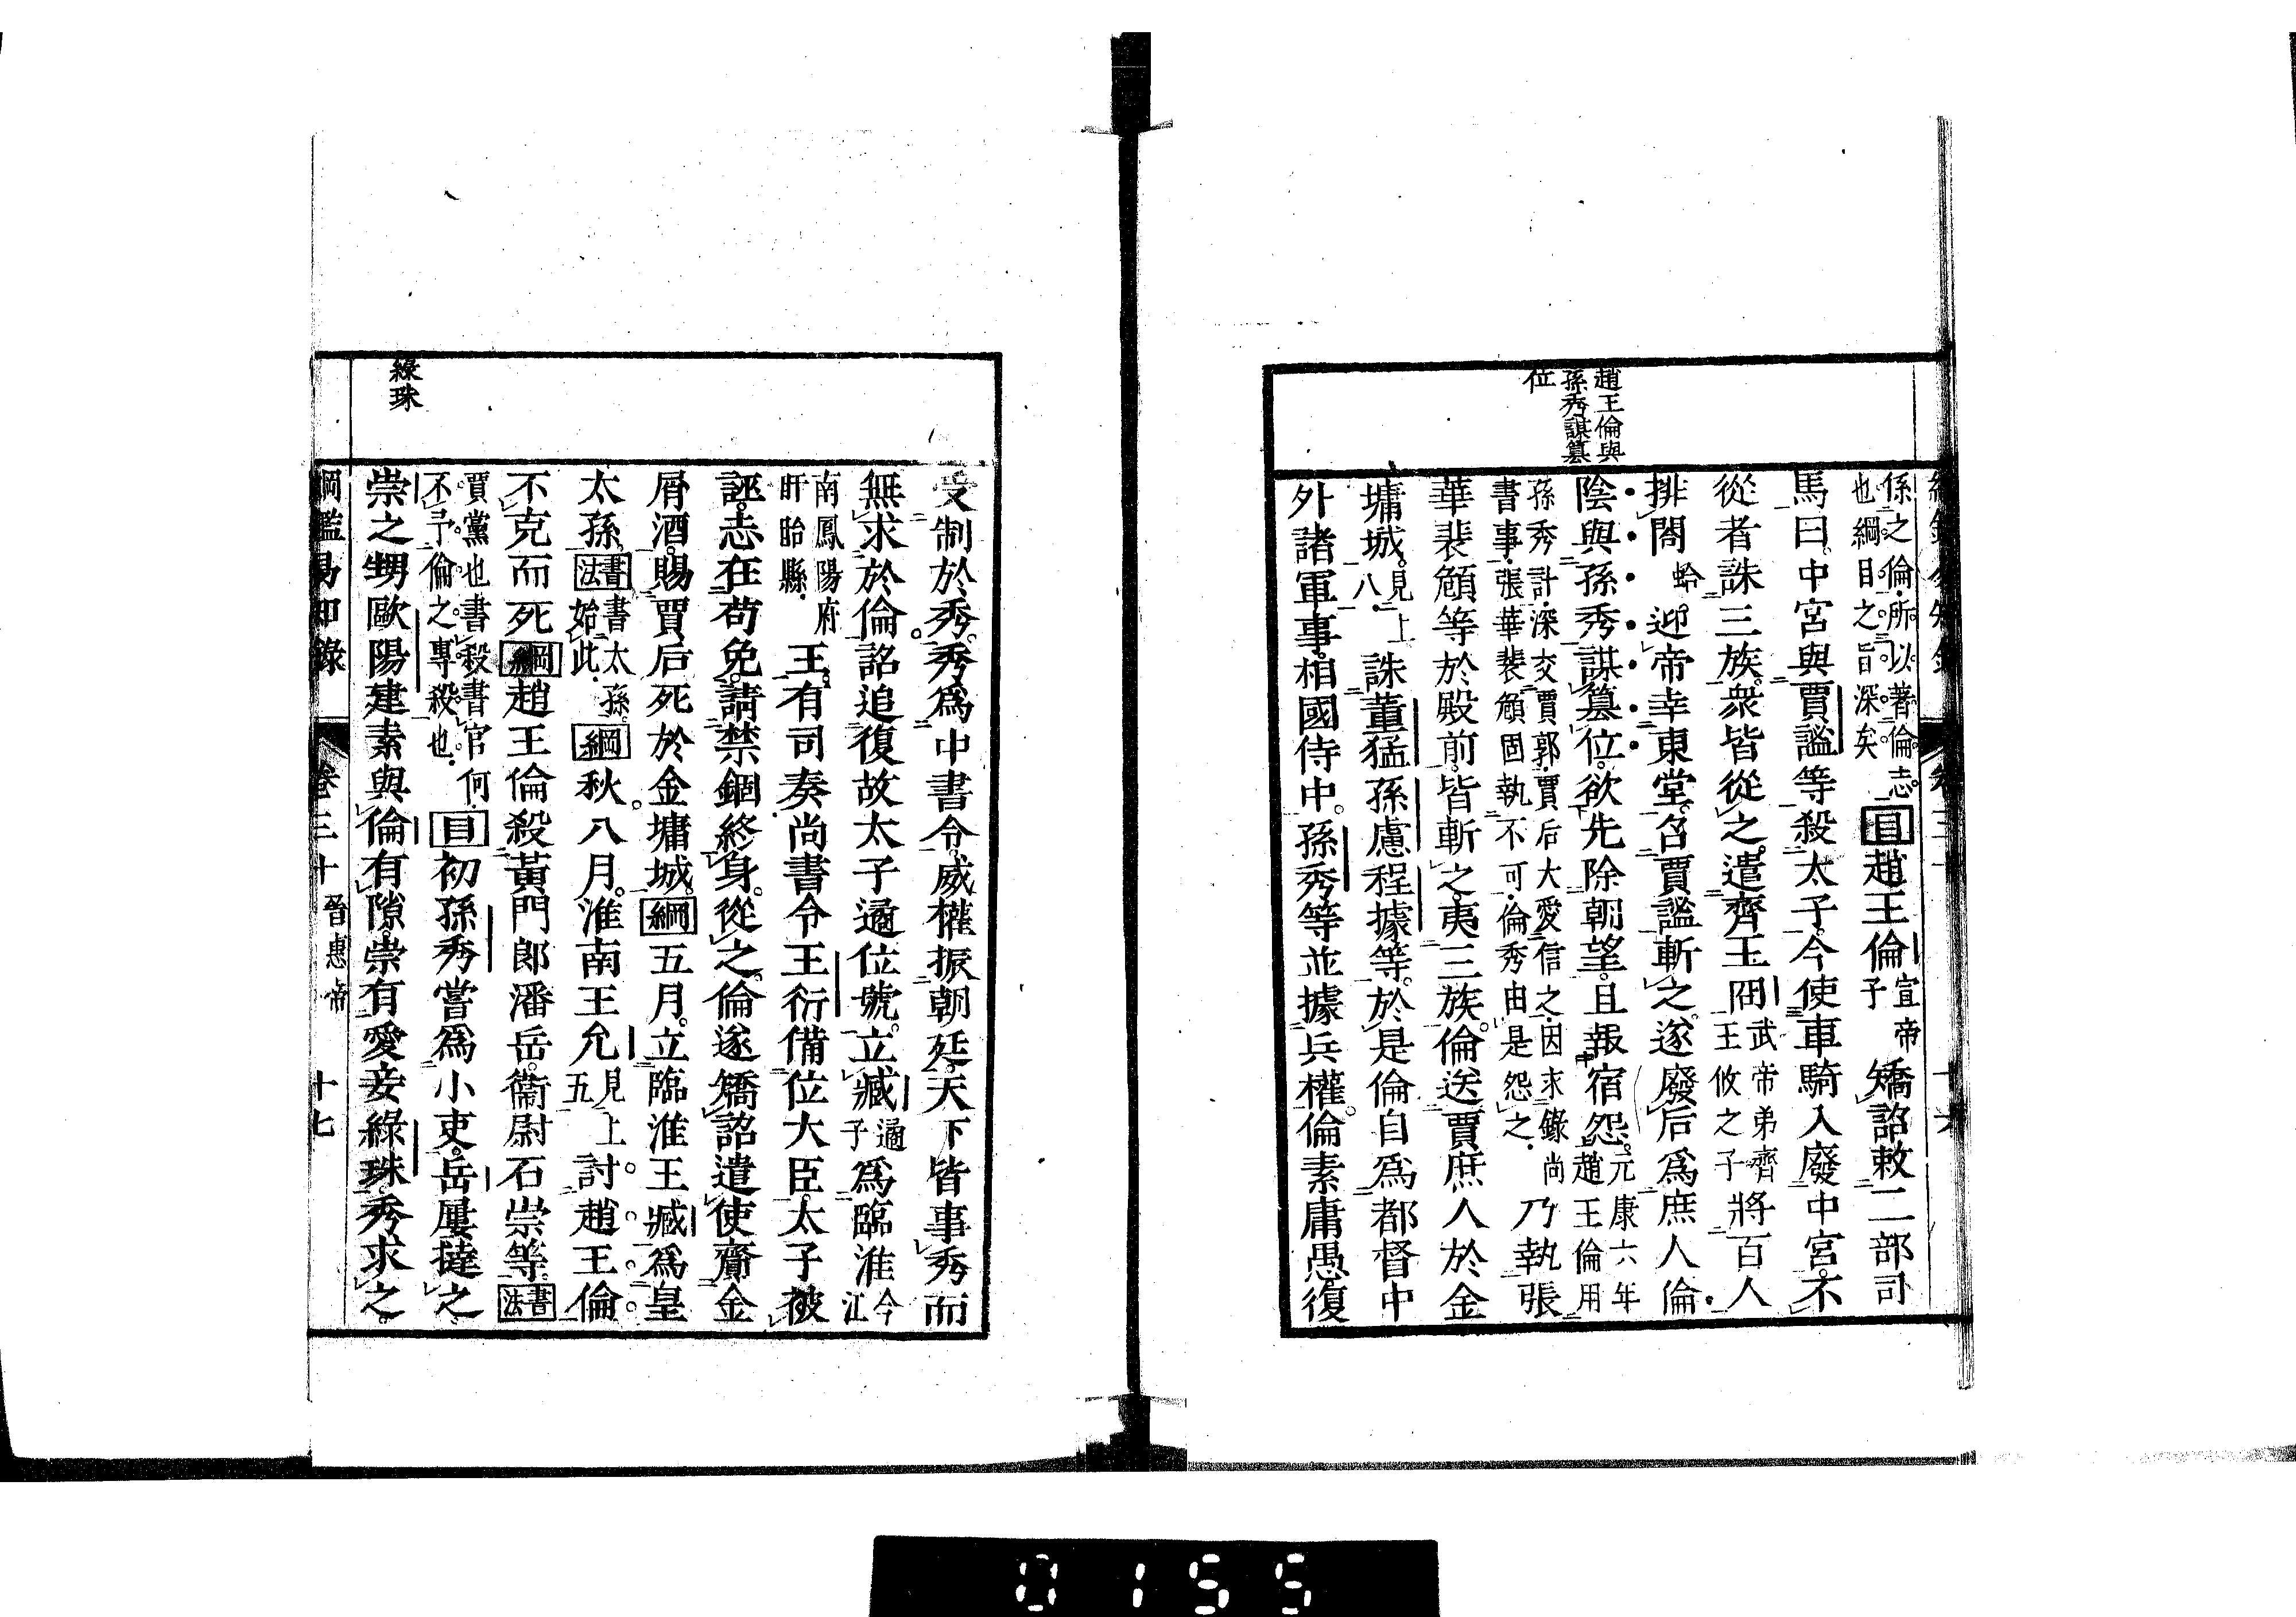 趙王倫與
孫秀謀篡
位
係之倫.所以著倫志。
也綱目之旨深矣
目趙王倫宣帝子矯詔敕二部司
馬曰。中宮與賈謐等殺太子。今使車騎入廢中宮。不
從者誅三族。衆皆從之。遣齊王冏武帝弟齊王攸之子將百人
排閤蛤。迎帝幸東堂。召賈謐斬之。遂廢后爲庶人倫
陰與孫秀謀篡位。欲先除朝望。且報宿怨。元康六年趙王倫用
孫秀計.深交賈郭.賈后大愛信之.因求錄尚
書事.張華裴頠固執不可.倫秀由是怨之.
乃執張
華裴頠等於殿前。皆斬之。夷三族。倫送賈庶人於金
墉城。見上八.誅董猛孫慮程據等。於是倫自爲都督中
外諸軍事。相國侍中。孫秀等並據兵權。倫素庸愚復
受制於秀。秀爲中書令。威權振朝廷。天下皆事秀而
無求於倫。詔追復故太子遹位號。立臧遹子爲臨淮今江
南鳳陽府
盱眙縣.
王。有司奏尚書令王衍備位大臣。太子被
誣。志在苟免。請禁錮終身。從之。倫遂矯詔遣使齎金
屑酒。賜賈后死於金墉城。綱五月。立臨淮王臧爲皇
太孫。書法書太孫。始此.綱秋。八月。淮南王允見上五討趙王倫。
不克而死綱趙王倫殺黃門郎潘岳。衞尉石崇等。書法
賈黨也書殺書官何.
不予倫之專殺也.
目初孫秀嘗爲小吏。岳屢撻之。
崇之甥歐陽建素與倫有隙。崇有愛妾綠珠。秀求之。
綠珠
綱鑑易知錄 卷三十 晉惠帝 十七